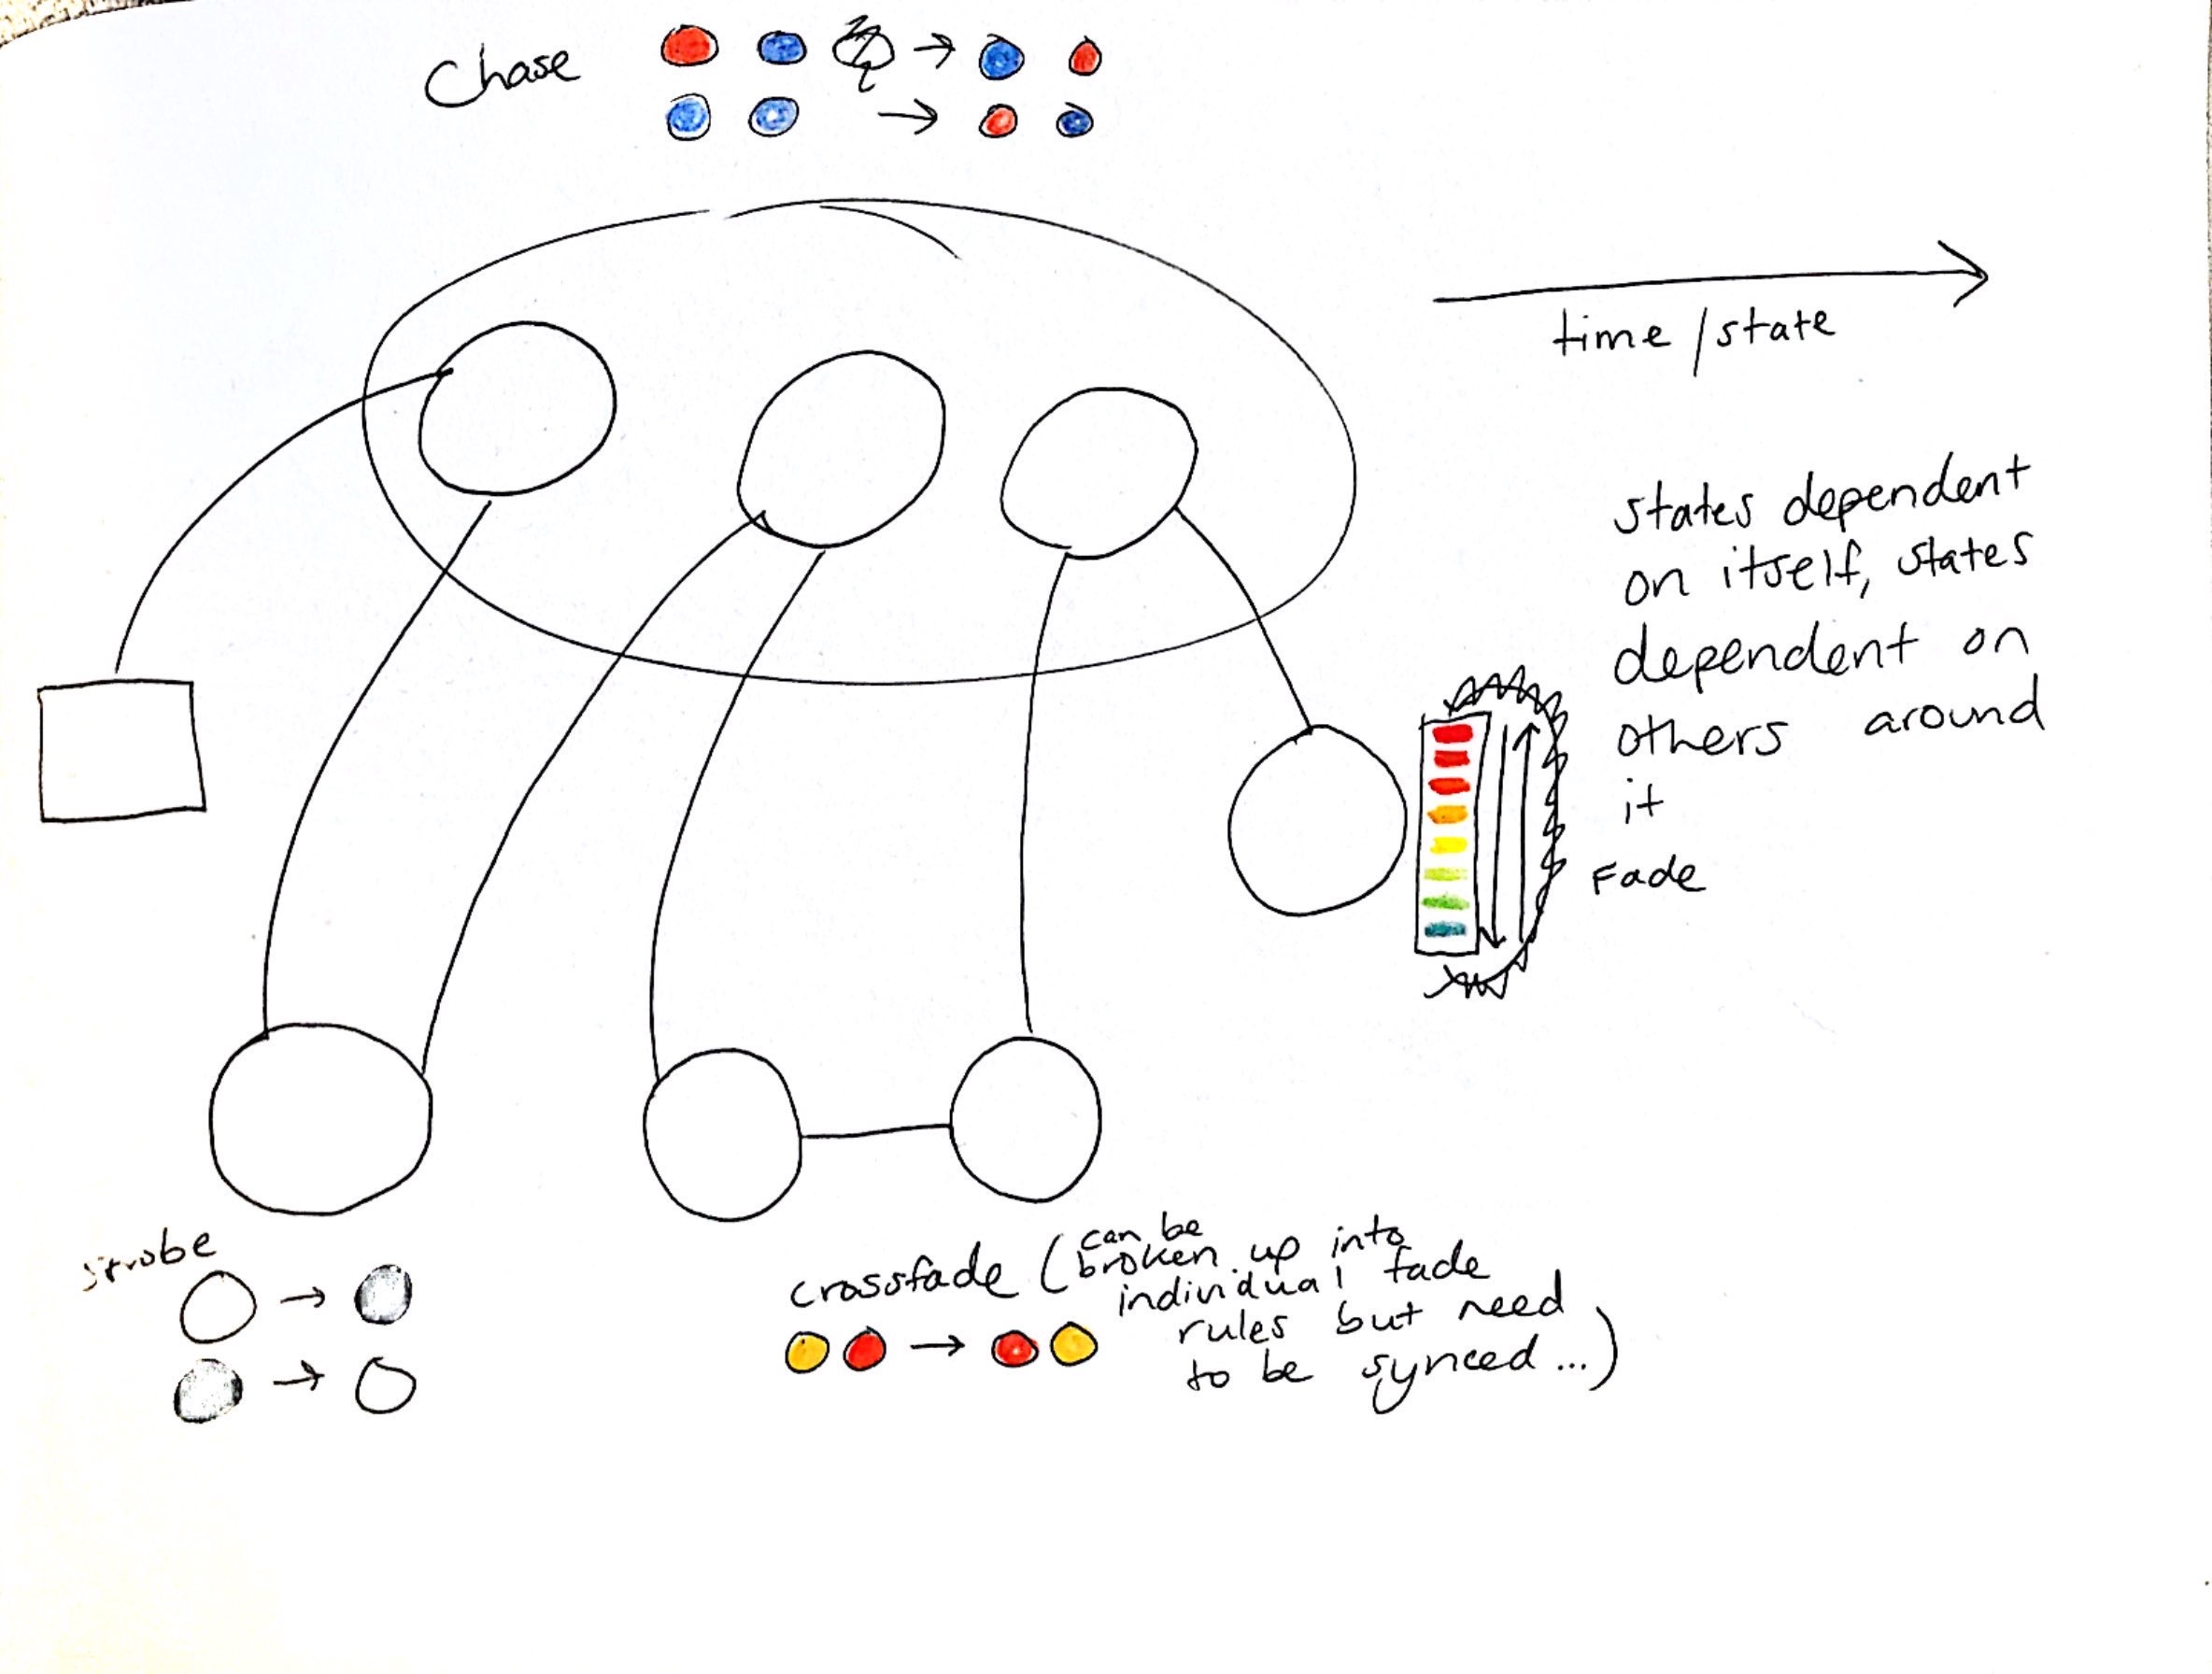 Chase
time / state
states dependent
on itself, states
dependent on
others around
it
Fade
strobe
crossfade (can be
broken up into
individual fade
rules but need
to be synced...)